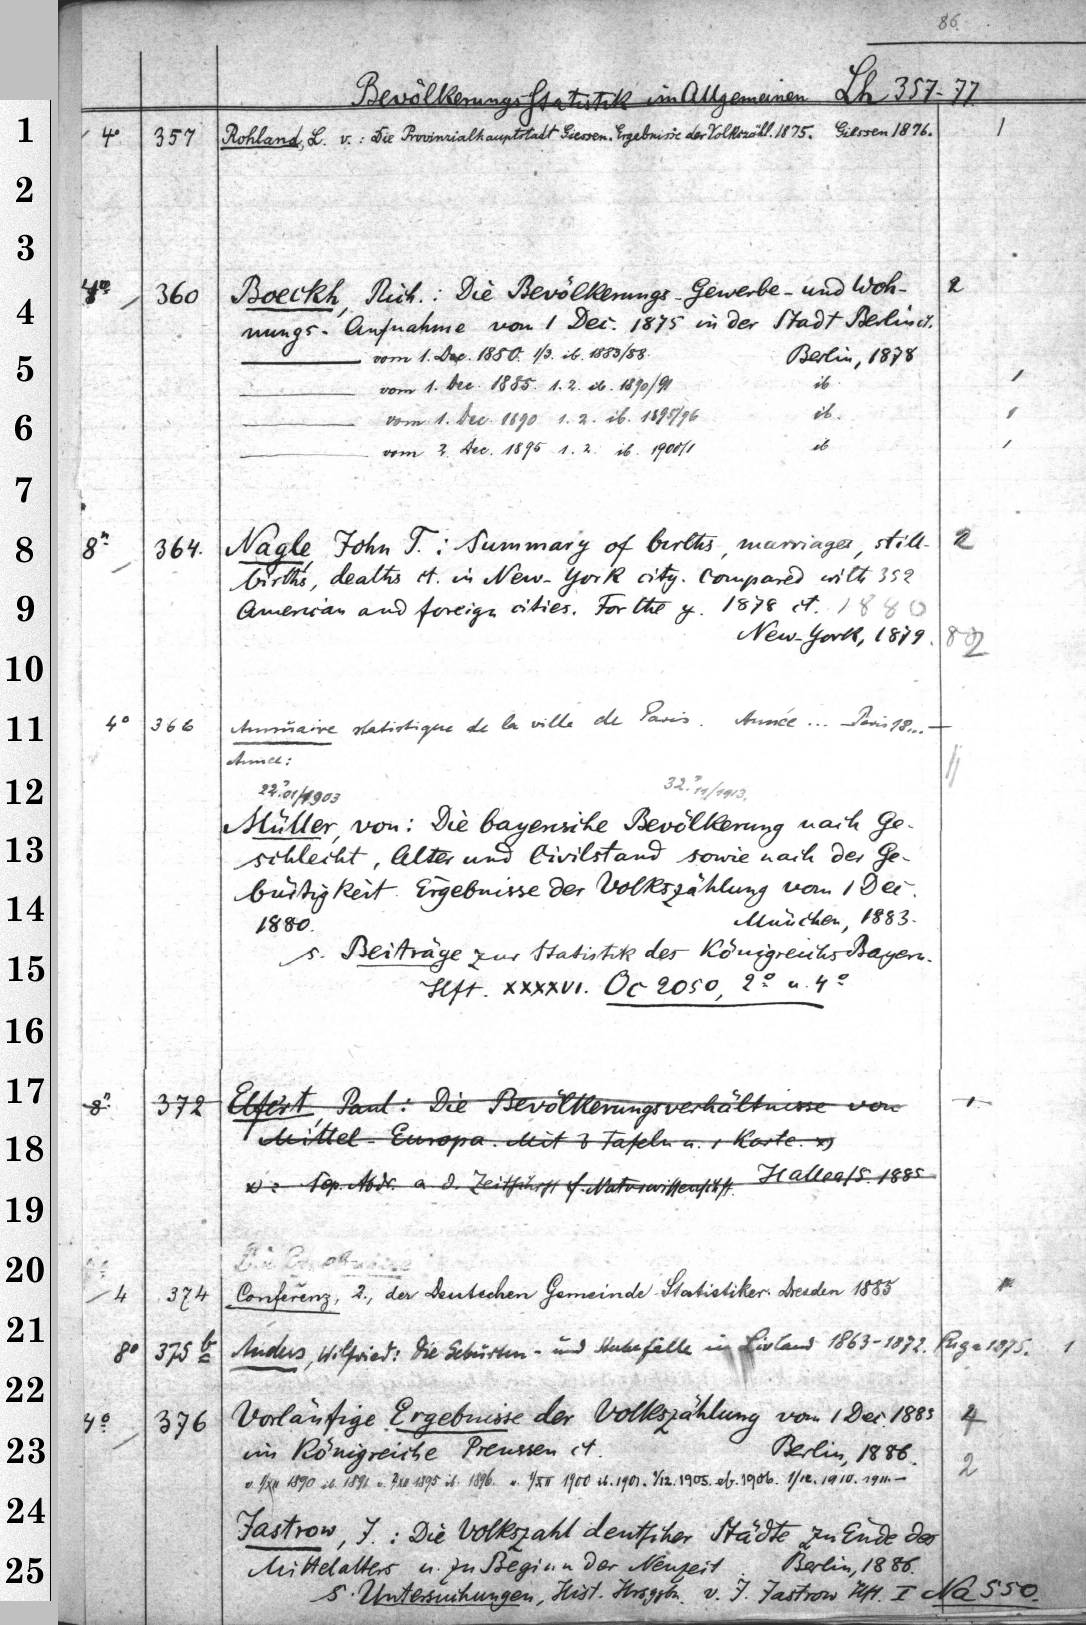 86.
Bevölkerungs Statistik im Allgemeinen Lh 357-77
1 4° 357 Rohland, L. v. : Die Provinzialhauptstadt Giessen. Ergebnisse der Volkszähl. 1875. Giessen 1876. 1
2
3
4° 360 Boeckh, Rich. : Die Bevölkerungs- Gewerbe- und Woh- 2
4 nungs- Aufnahme vom 1 Dec. 1875 in der Stadt Berlin ct.
5 vom 1. Dec. 1850. 1/3. ib. 1883/88. Berlin, 1878
vom 1. Dec. 1885. 1. 2. ib. 1890/91 ib. 1
6 vom 1. Dec. 1890 1. 2. ib. 1895/96 ib. 1
vom 2. Dec. 1895 1. 2. ib. 1900/1 ib 1
7
8 8° 364. Nagle, John T. : Summary of births, marriages, still- 2
births, deaths ct. in New-York city. Compared with 352
9 American and foreign cities. For the y. 1878 ct. 1880
New-York, 1879. 82
10
11 4° 366 Annuaire statistique de la ville de Paris. Année ... Paris 18...—
Année:
12 22.° 01/1903 32.° 11/1913.
Müller, von: Die bayerische Bevölkerung nach Ge-
13 schlecht, Alter und Civilstand sowie nach der Ge-
14 bürtigkeit. Ergebnisse der Volkszählung vom 1 Dec.
1880. München, 1883.
15 s. Beiträge zur Statistik des Königreichs Bayern.
Hft. XXXXVI. Oc 2050, 2° u. 4°
16
17 8° 372 Elfert, Paul: Die Bevölkerungsverhältnisse von 1
18 Mittel-Europa. Mit 3 Tafeln u. 1 Karte. x)
x) : Sep. Abdr. a. d. Zeitschrift f. Naturwissenschft. Halle a/S. 1885
19
20
4 374 Conferenz, 2., der Deutschen Gemeinde-Statistiker. Dresden 1885
21 8° 375 b Anders, Wilfried: Die Geburten- und Sterbefälle in Livland 1863-1872. Riga 1875. 1
22 4° 376 Vorläufige Ergebnisse der Volkszählung vom 1 Dec. 1885 4
23 im Königreiche Preussen ct. Berlin, 1886. 2
v. 1/XII 1890 ib. 1891 v. 2/XII 1895 ib. 1896. v. 1/XII 1900 ib. 1901. 1/12. 1905. eb. 1906. 1/12. 1910. 1911.—
24 Jastrow, J. : Die Volkszahl deutscher Städte zu Ende des
25 Mittelalters u. zu Beginn der Neuzeit Berlin, 1886.
s. Untersuchungen, Hist. Hrsggbn. v. J. Jastrow Hft. I Na 550.